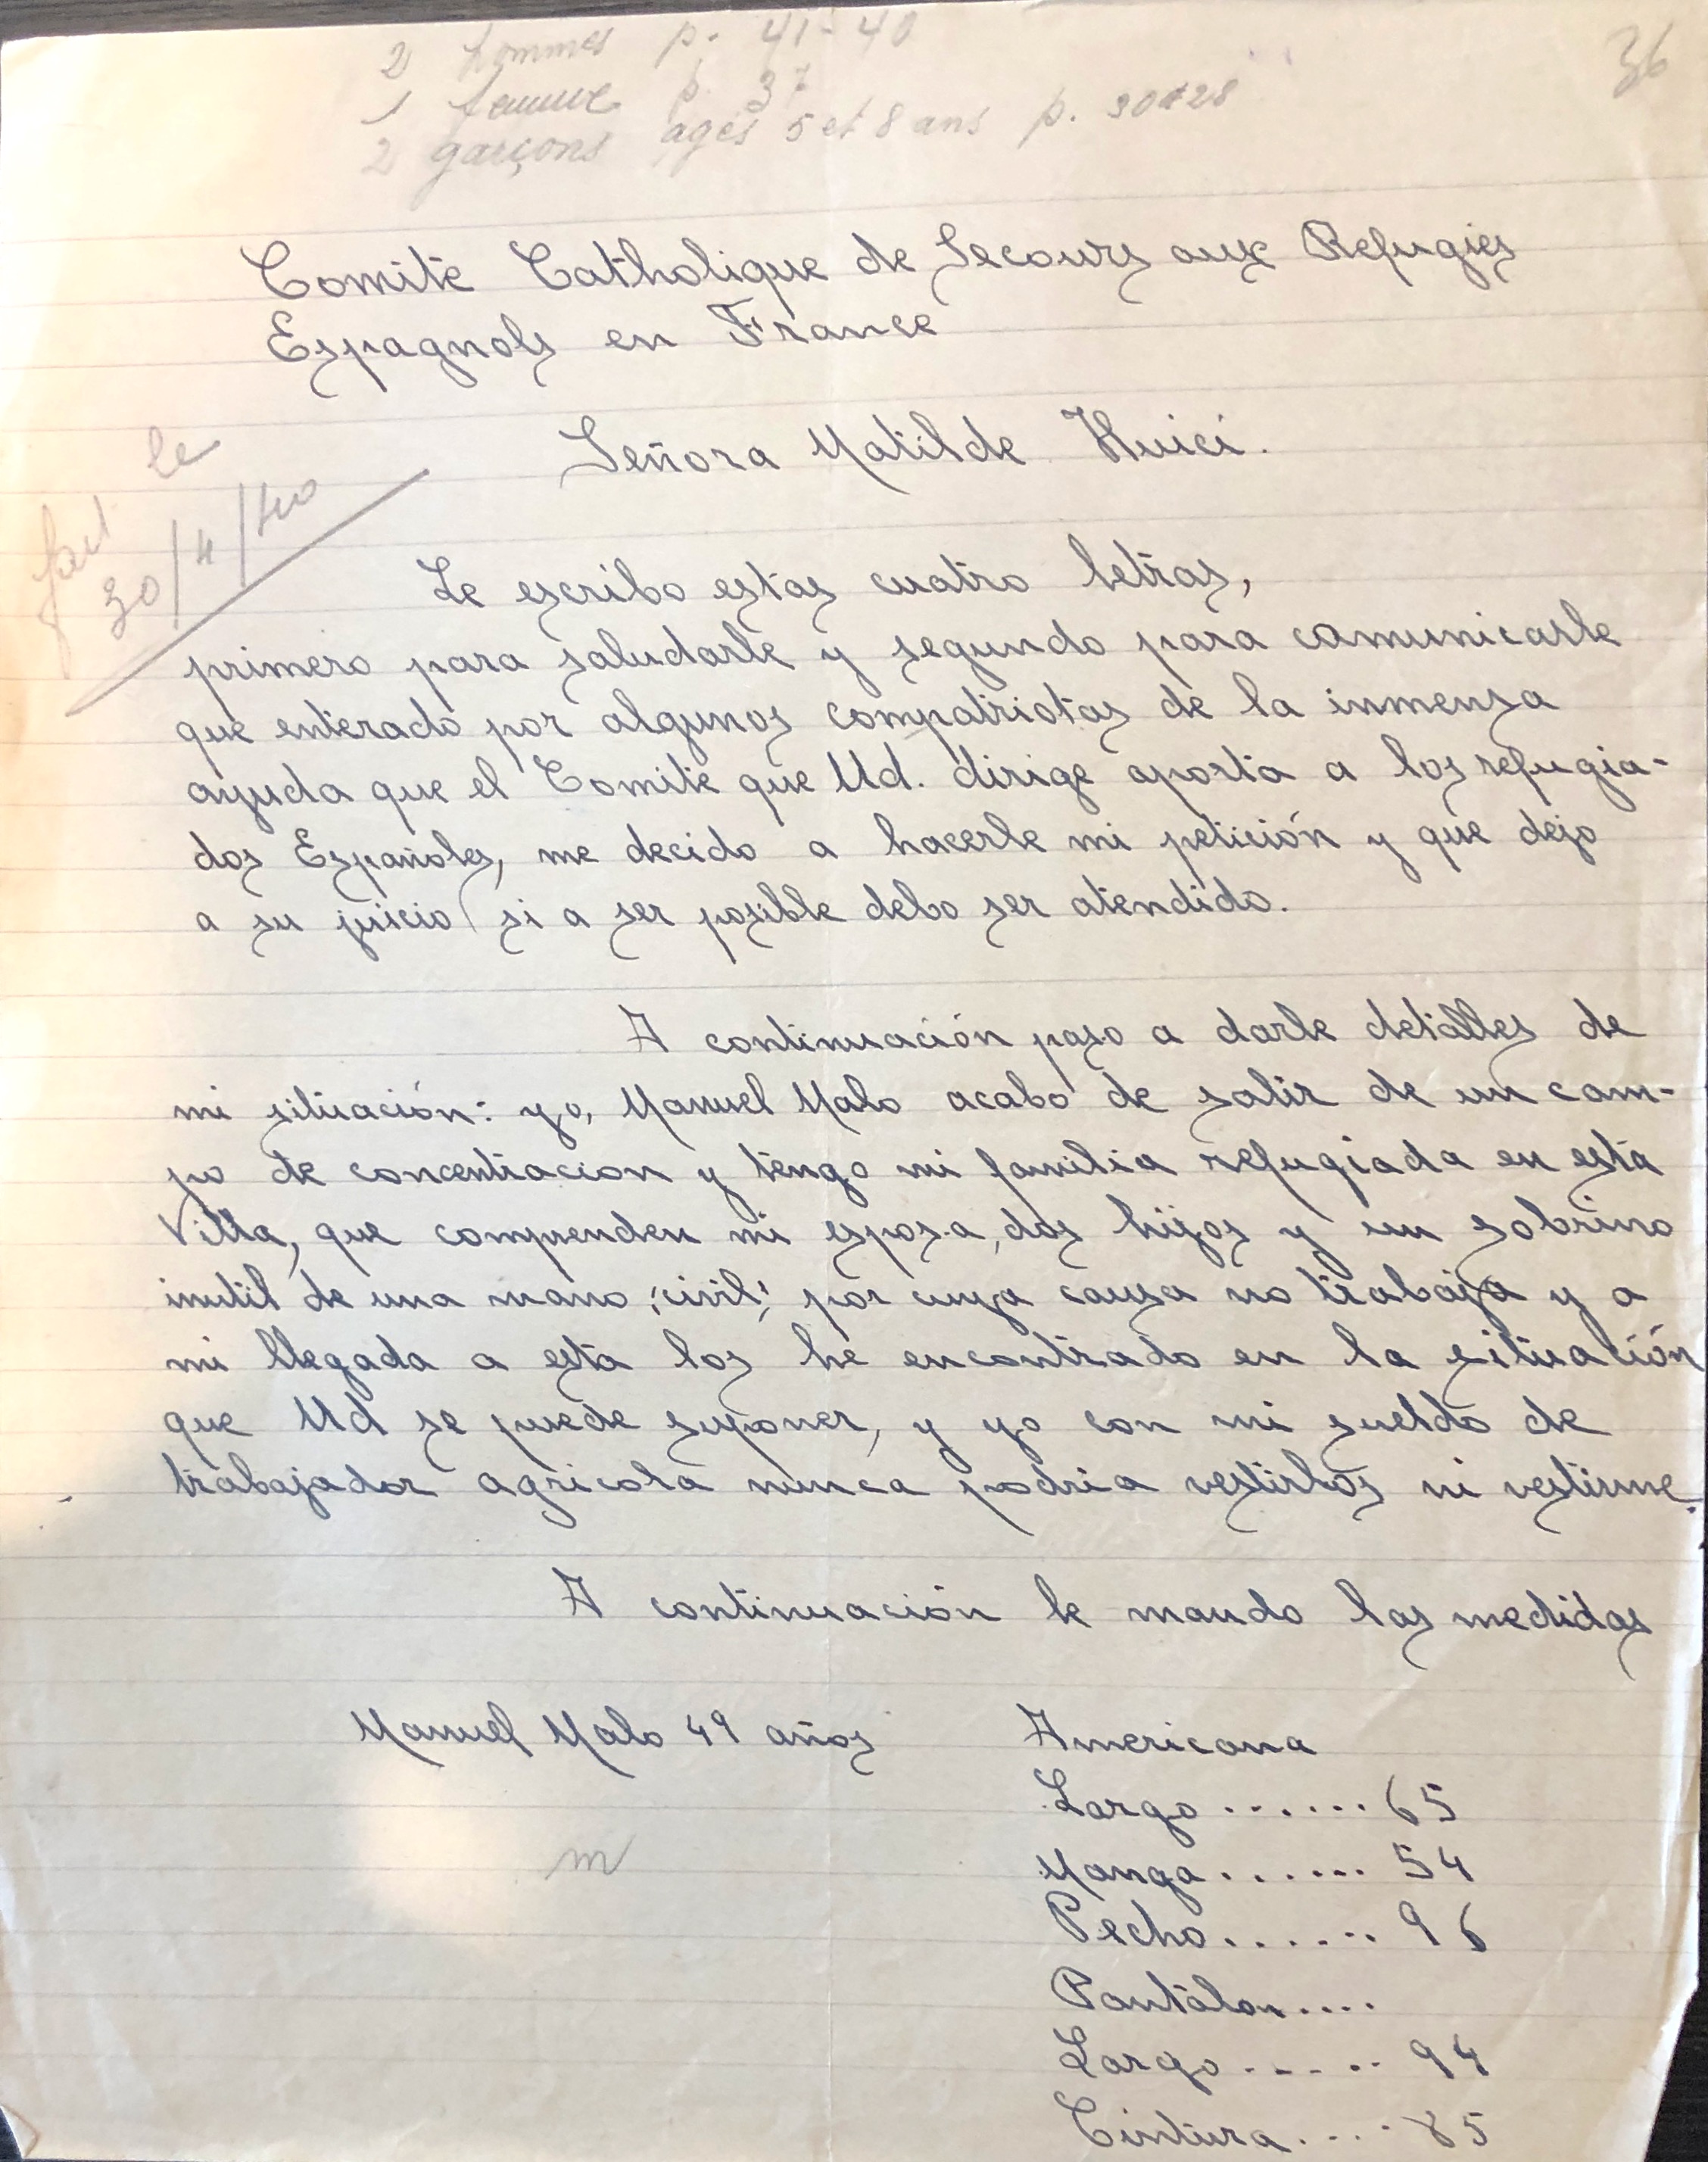 36
2 hommes p. 41-40
1 femme p. 37
2 garçons agés 5 et 8 ans p. 30 28
Comite Catholique de Secours aux Refugies
Espagnols en France
Señora Matilde Huici.
fait le
30/4/40
Le escribo estas cuatro letras,
primero para saludarle y segundo para comunicarle
que enterado por algunos compatriotas de la inmensa
ayuda que el Comite que Ud. dirige aporta a los refugia-
dos Españoles, me decido a hacerle mi petición y que dejo
a su juicio si a ser posible debo ser atendido.
A continuación paso a darle detalles de
mi situación: yo, Manuel Malo acabo de salir de un cam-
po de concentracion y tengo mi familia refugiada en esta
Villa, que comprenden mi esposa, dos hijos y un sobrino
inutil de una mano ¡civil! por cuya causa no trabaja y a
mi llegada a esta los he encontrado en la situación
que Ud se puede suponer, y yo con mi sueldo de
trabajador agricola nunca podria vestirlos ni vestirme.
A continuación le mando las medidas
Manuel Malo 49 años
Americana
Largo ...... 65
m
Manga ...... 54
Pecho ...... 96
Pantalon ....
Largo ..... 94
Cintura .... 85